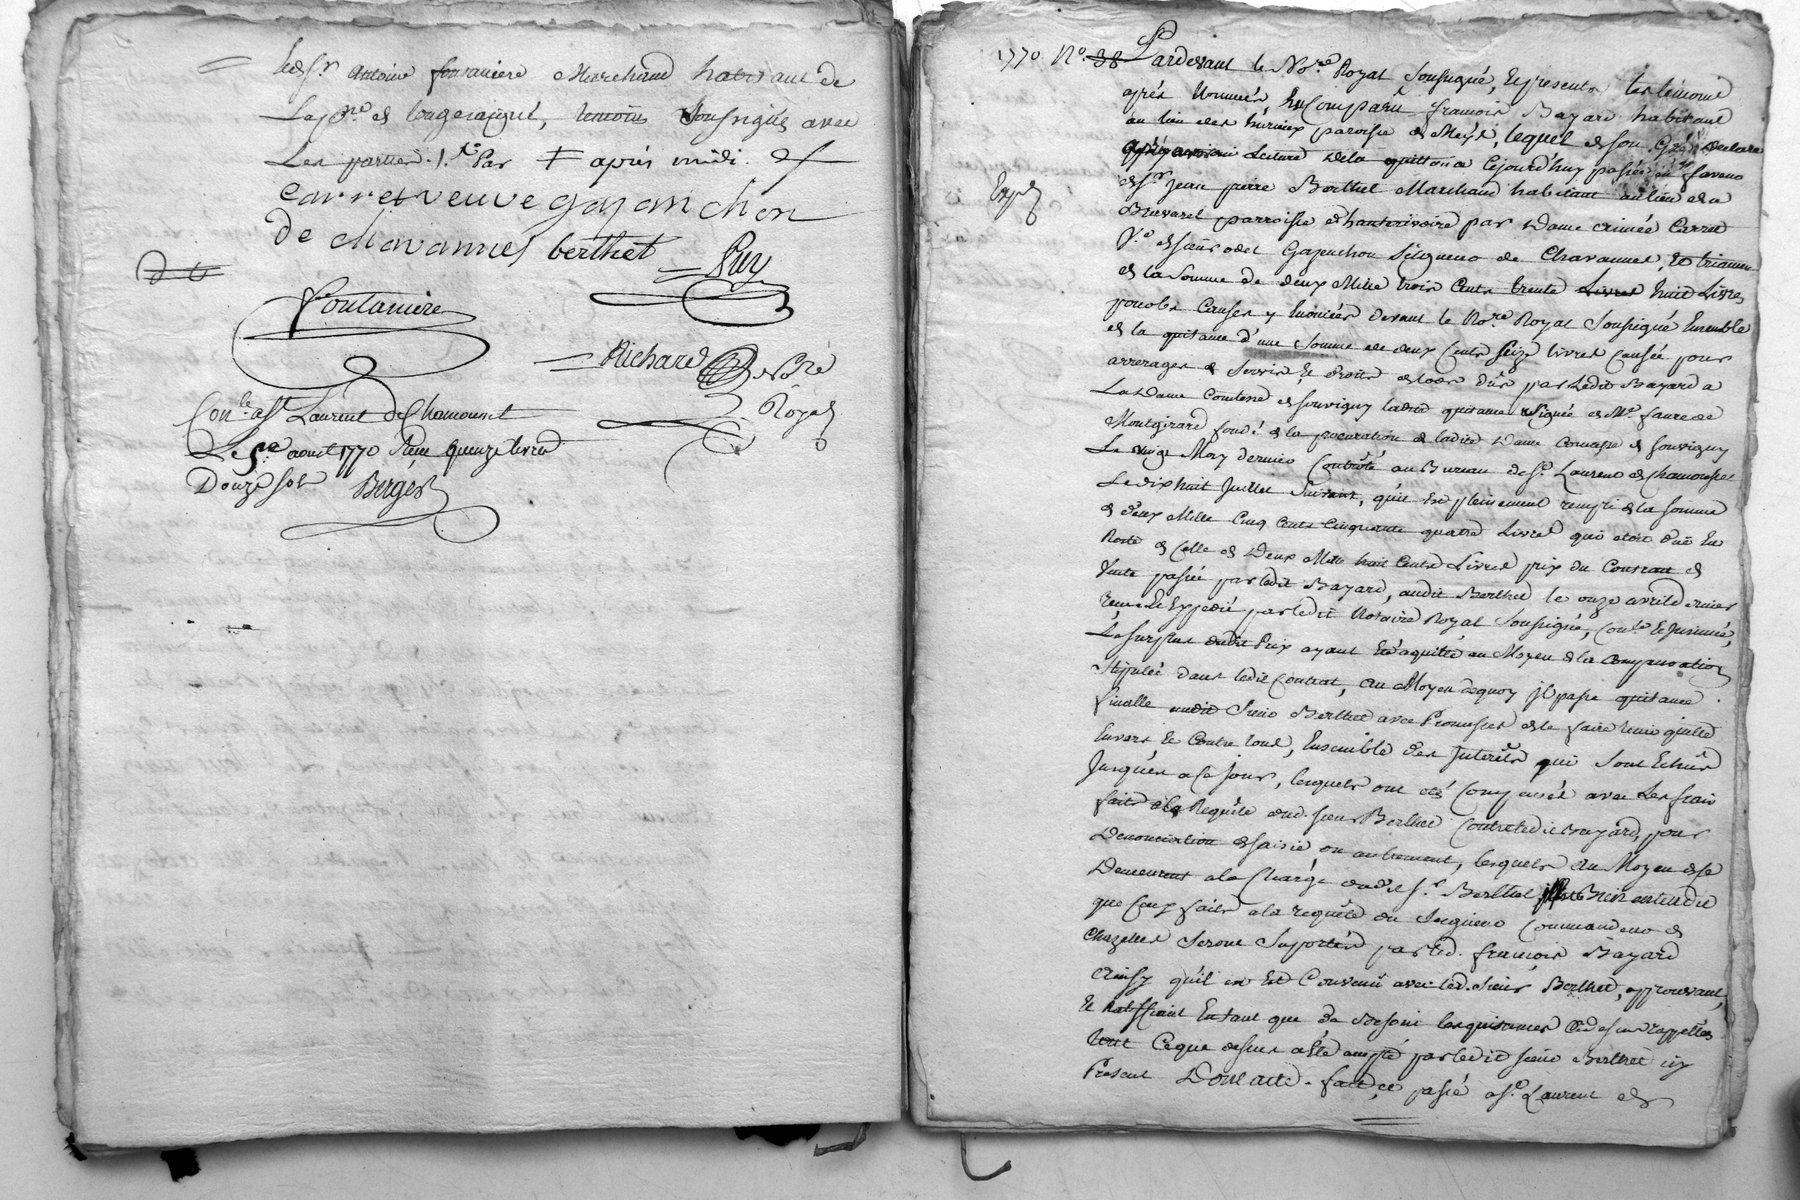 led sr antoine fontaniere Marchand habitant de
La pse de longesaigne, temoins soussignés avec
Les parties. aprés midi.
Carret veuve gayan chon
de chavannes berthet Puy
Fontaniere
Richard Nore
Royal
Conlé a St Laurent de Chamousset
Le aoust 1770 Reçu quinze livres
Douze sols Berger
1770 No. 38 Pardevant le Nore Royal Soussigné, Et presents les témoins
aprés Nommés, En Comparu françois Bayard habitant
au lieu des paroisse de Meys, lequel de son Gré declare
Lecture de la quittance Cejourd'huy passée en faveur
Exp
de sr Jean pierre Berthet Marchand habitant au lieu de la
paroisse d'hauterivoire par Dame aimée Carret
Ve de sieur Gayenchon Seigneur de Chavannes,
de la Somme de deux Mille trois Cents trente Livres huit Livres
pour les Causes y Enoncées devant le Nore Royal Soussigné Ensemble
de la quitance d'une Somme de deux Cents Seize livres Causée pour
arrerages de Servis Et droits de lods dûs par Ledit Bayard a
La Dame Comtesse de Souvigny ladite quitance Signée de Mr faure de
Montgirard fondé de la procuration de ladite Dame Comtesse de Souvigny
Le vingt May dernier Contrôlé au Bureau de St Laurent de Chamousset
Le dix huit Juillet Suivant, qu'il Est pleinement rempli de la Somme
de deux Mille Cinq Cents Cinquante quatre Livres qui etoit düe En
Reste de Celle de Deux Mille huit Cents Livres prix du Contrat de
Vente passée par ledit Bayard, audit Berthet le onze avril dernier
reçu Et Expedié par ledit Notaire Royal Soussigné, Conlé Et Insinué,
Le surplus dudit Prix ayant Eté aquitté au Moyen de la Compensation
Stipulée dans ledit Contrat, Au Moyen dequoy il passe quitance
finalle audit Sieur Berthet avec Promesses de le faire tenir quitte
Envers Et Contre tous, Ensemble des Interets qui Sont Echûs
Jusques a Ce Jour, lesquels ont eté Compensés avec Les frais
faits a la Requête dud. sieur Berthet Contre ledit Bayard, pour
Denonciation de saisie ou autrement, lesquels Au Moyen de ce
Demeurent a la Charge dudit Sr Berthet Bien entendu
que Ceux faits a la requête du Seigneur Commandeur de
Chazelles Seront Suportés par led. françois Bayard
Ainsy qu'il en Est Convenû avec led. Sieur Berthet, approuvant,
Et Ratiffiant En tant que de Besoin les quitances Cy dessus rappellées
tout Ceque dessus a été accepté par ledit sieur Berthet icy
Present Dont acte. fait, et passé a St Laurent de